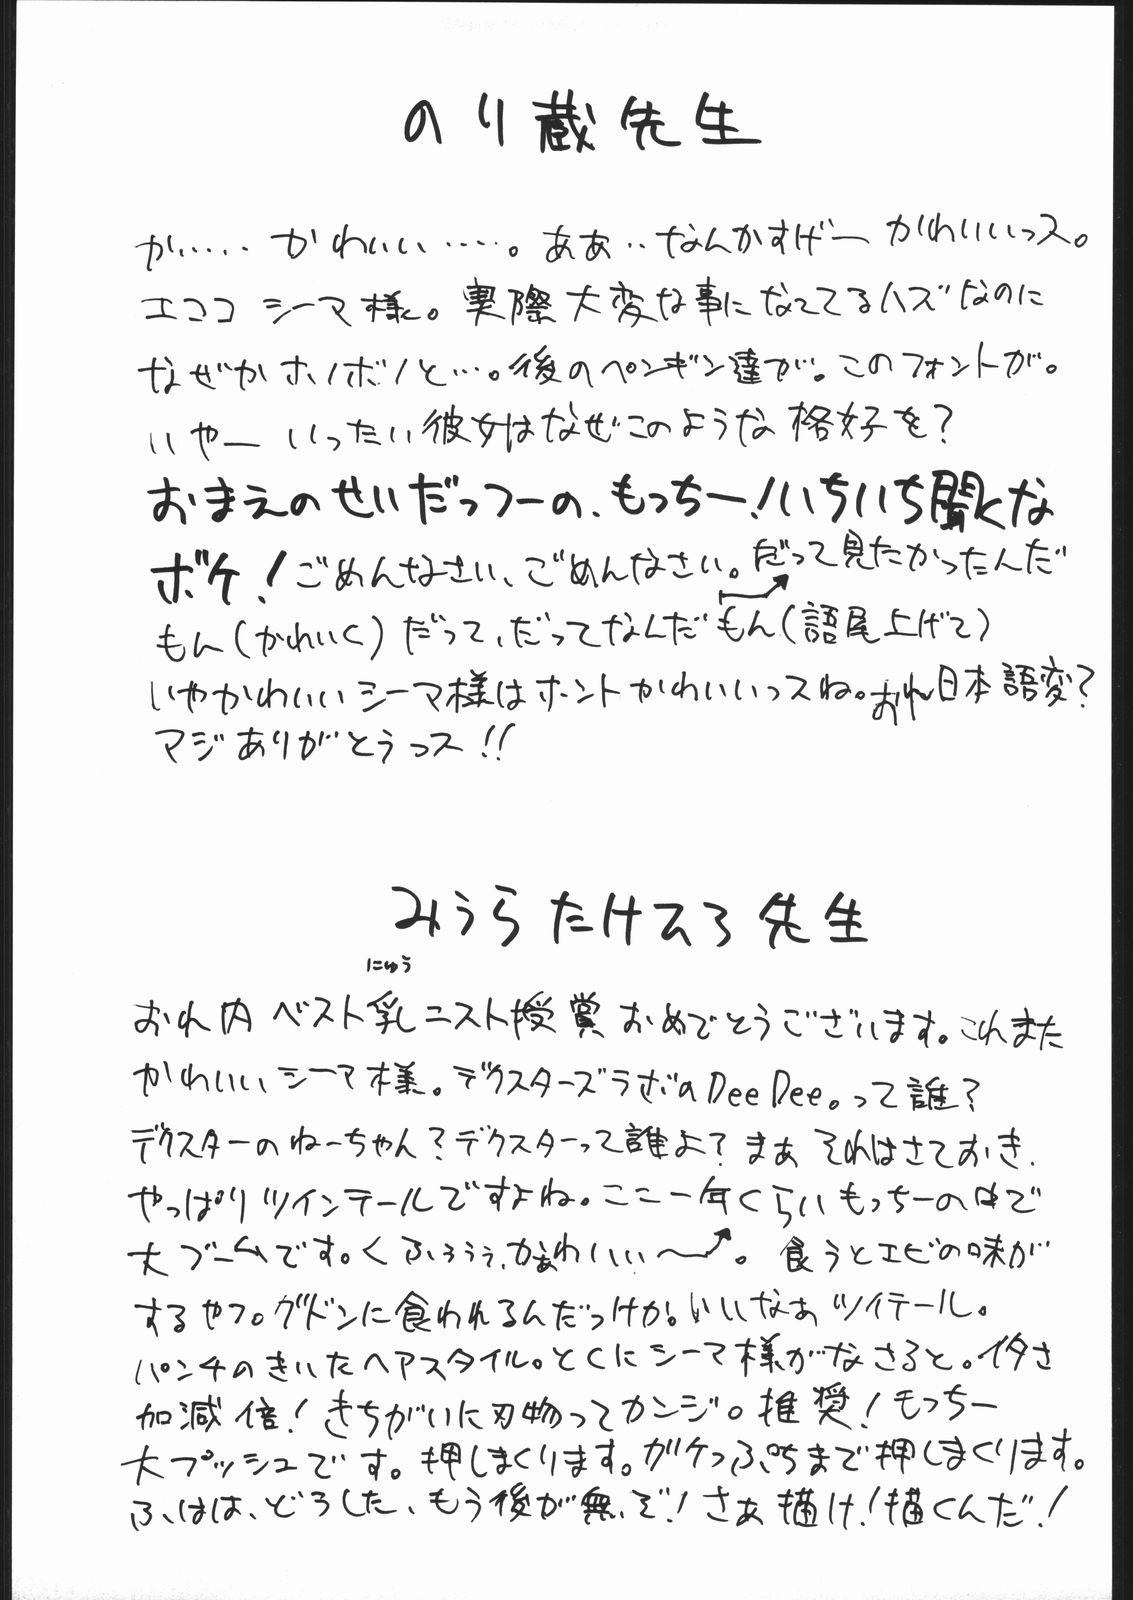 のり蔵先生
か‥‥‥かわいい‥‥‥。ああ‥なんかすげーかわいいっス。
エココ シーマ様。実際大変な事になってるハズなのに
なぜかホノボノと…。後のペンギン達が。このフォントが。
いやー いったい彼女はなぜこのような格好を?
おまえのせいだっつーの、もっちー!いちいち聞くな
ボケ!ごめんなさい、ごめんなさい。だって見たかったんだ
もん(かわいく)だって、だってなんだもん(語尾上げて)
いやかわいいシーマ様はホントかわいいっスね。おれ日本語変?
マジありがとうっス!!
みうらたけひろ先生
にゅう
おれ内ベスト乳ニスト授賞おめでとうございます。これまた
かわいいシーマ様。デクスターズラボのDeeDee。って誰?
デクスターのねーちゃん?デクスターって誰よ?まぁそれはさておき、
やっぱりツインテールですよね。ここ一年くらいもっちーの中で
大ブームです。くふぅぅぅ、かぁわいいぃ〜。食うとエビの味が
するヤツ。グドンに食われるんだっけか。いいなぁツイテール。
パンチのきいたヘアスタイル。とくにシーマ様がなさると。イタさ
加減倍!きちがいに刃物ってカンジ。推奨!もっちー
大プッシュです。押しまくります。ガケっぷちまで押しまくります。
ふはは、どうした、もう後が無いぞ!さぁ描け!描くんだ!